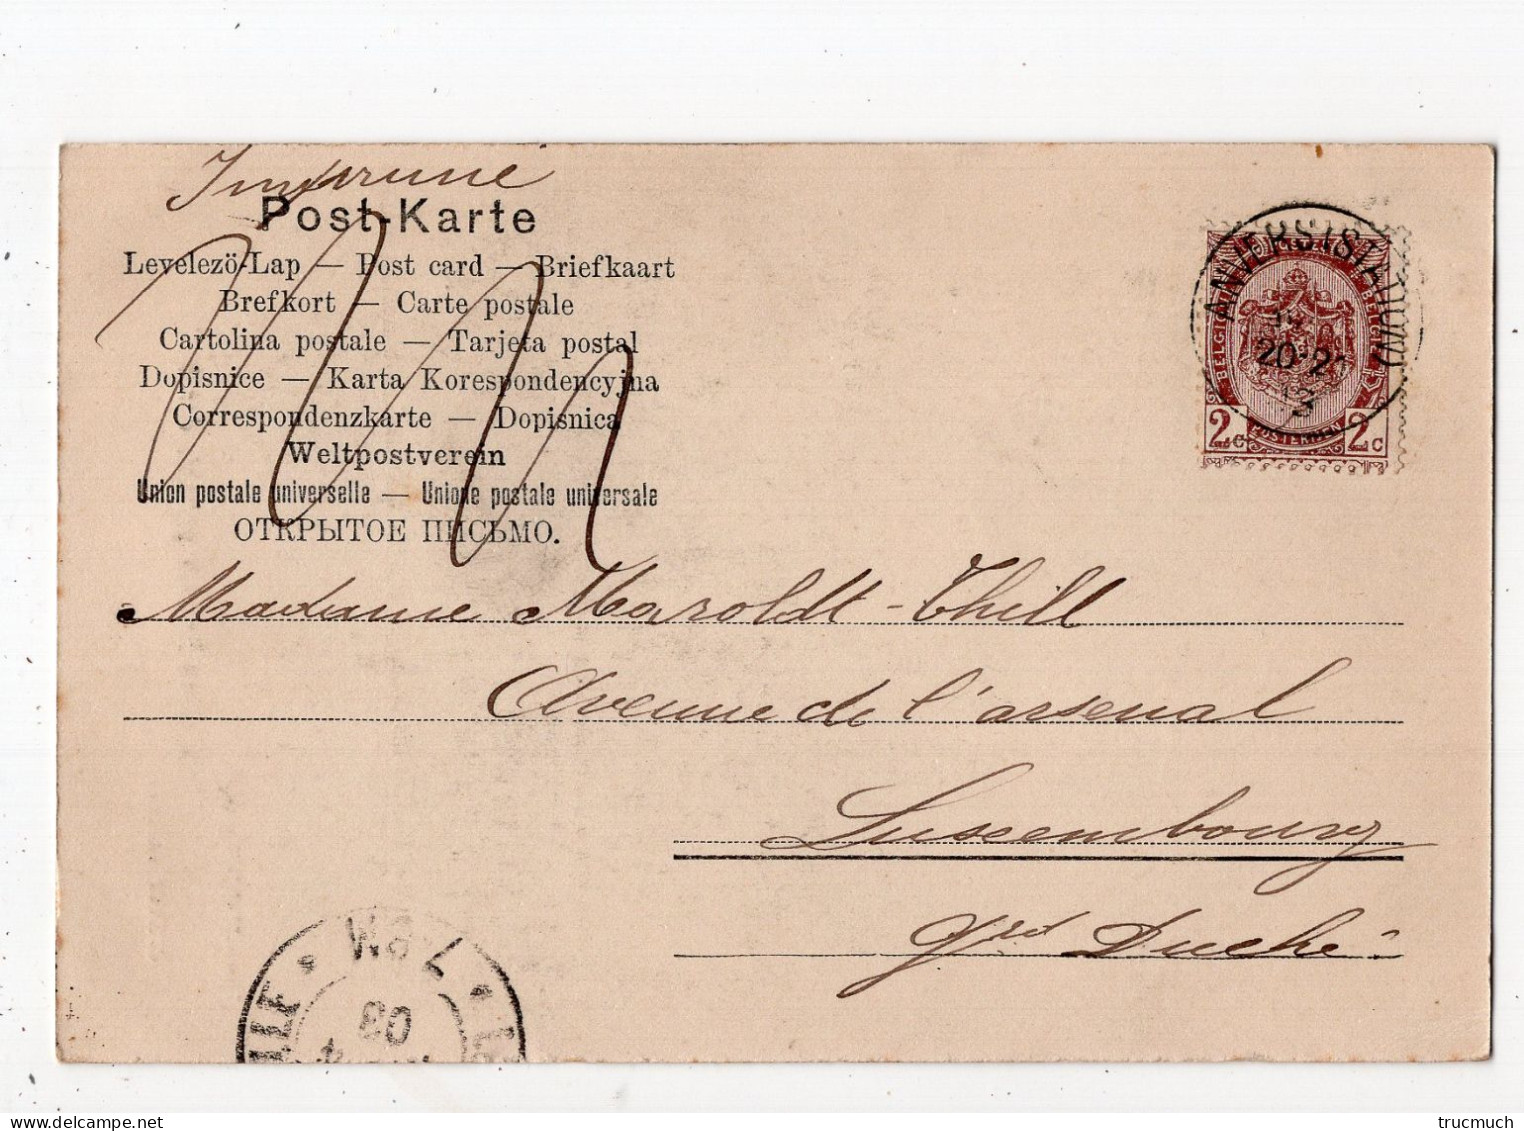 Imprimé
Post-Karte
Levelezö-Lap — Post card — Briefkaart
Brefkort — Carte postale
Cartolina postale — Tarjeta postal
Dopisnice — Karta Korespondencyjna
Correspondenzkarte — Dopisnica
Weltpostverein
Union postale universelle — Unione postale universale
ОТКРЫТОЕ ПИСЬМО.
2c POSTERIJEN 2c
20-21
Madame Maroldt-Thill
Avenue de l'arsenal
Luxembourg
Grd Duché
03
trucmuch